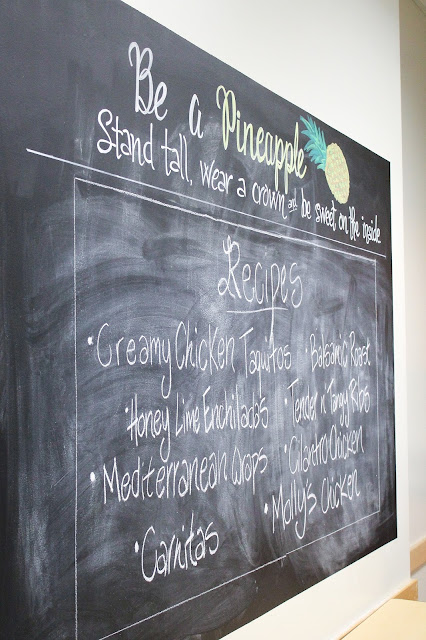 Be a Pineapple
Stand tall, wear a crown and be sweet on the inside
Recipes
• Creamy Chicken Taquitos
• Honey Lime Enchiladas
• Mediterranean Wraps
• Carnitas
• Balsamic Roast
• Tender n' Tangy Ribs
• Cilantro Chicken
• Molly's Chicken